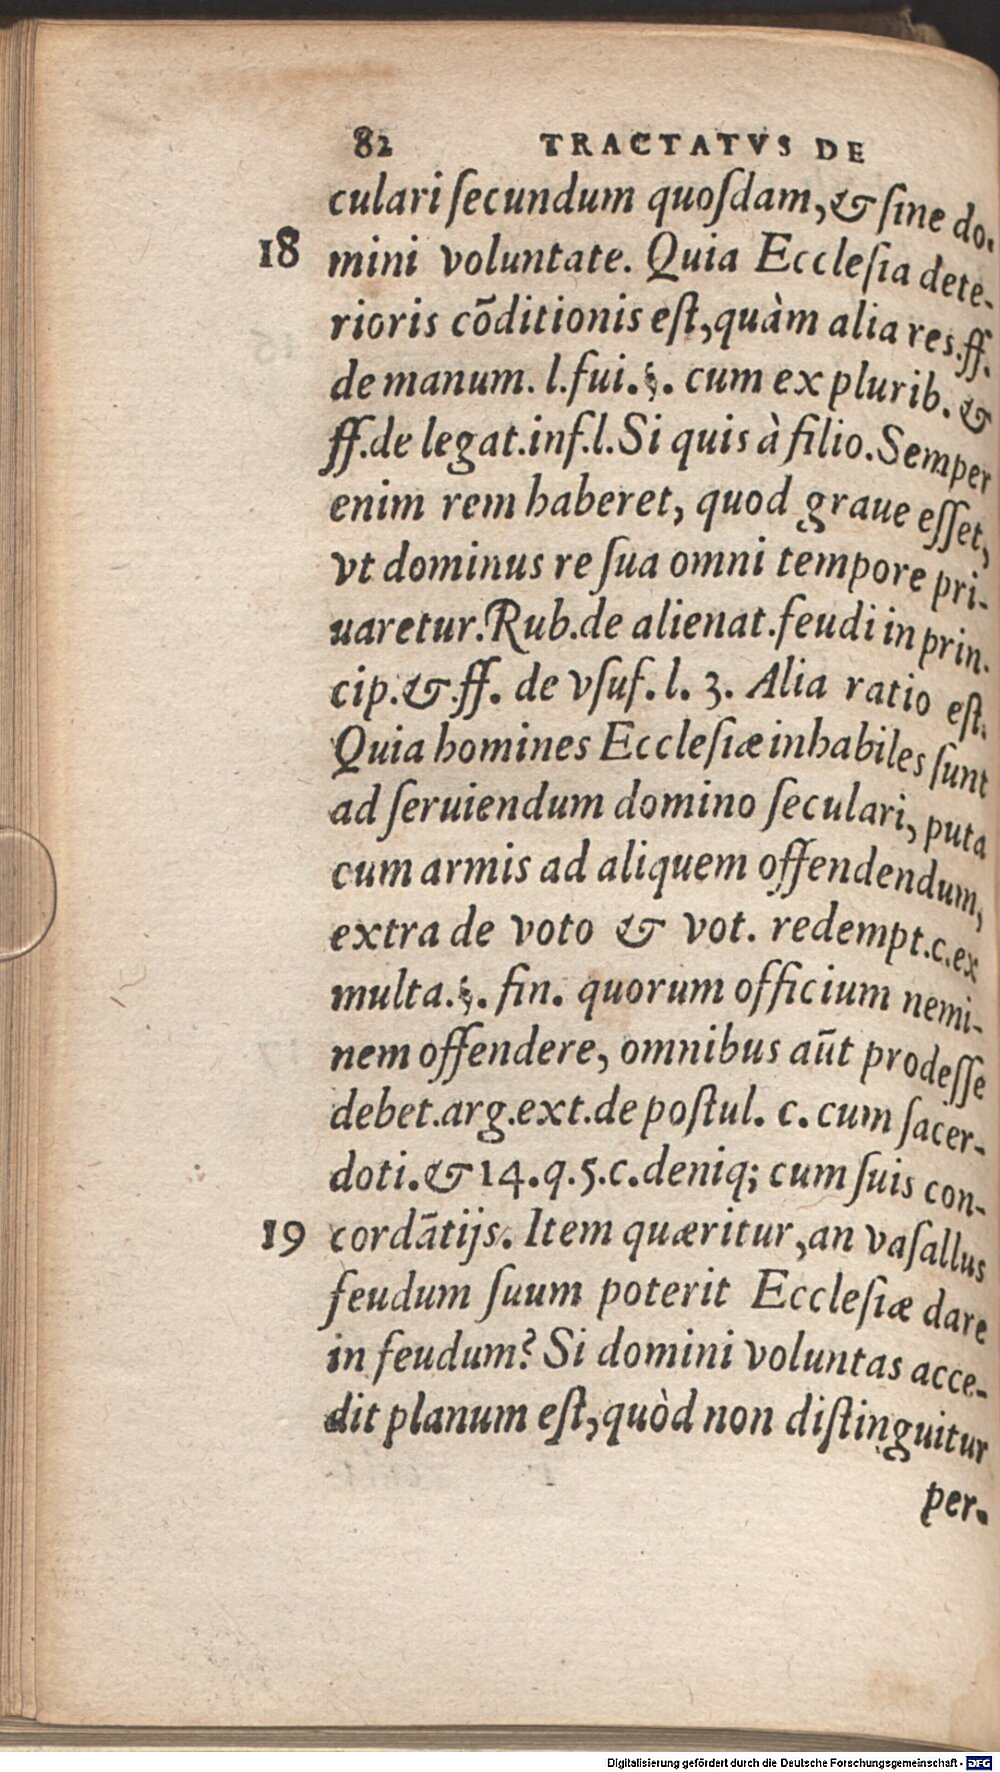 82 TRACTATVS DE
culari ſecundum quoſdam, & ſine do-
18 mini voluntate. Quia Eccleſia dete-
rioris cõditionis eſt, quàm alia res. ff.
de manum. l. fui. §. cum ex plurib. &
ff. de legat. inf. l. Si quis à filio. Semper
enim rem haberet, quod graue eſſet,
vt dominus re ſua omni tempore pri-
uaretur. Rub. de alienat. feudi in prin-
cip. & ff. de vſuf. l. 3. Alia ratio eſt.
Quia homines Eccleſiæ inhabiles ſunt
ad ſeruiendum domino ſeculari, puta
cum armis ad aliquem offendendum,
extra de voto & vot. redempt. c. ex
multa. §. fin. quorum officium nemi-
nem offendere, omnibus aũt prodeſſe
debet. arg. ext. de poſtul. c. cum ſacer-
doti. & 14. q. 5. c. deniq; cum ſuis con-
19 cordãtijs. Item quæritur, an vaſallus
feudum ſuum poterit Eccleſiæ dare
in feudum? Si domini voluntas acce-
dit planum eſt, quòd non diſtinguitur
per-
Digitalisierung gefördert durch die Deutsche Forschungsgemeinschaft - DFG